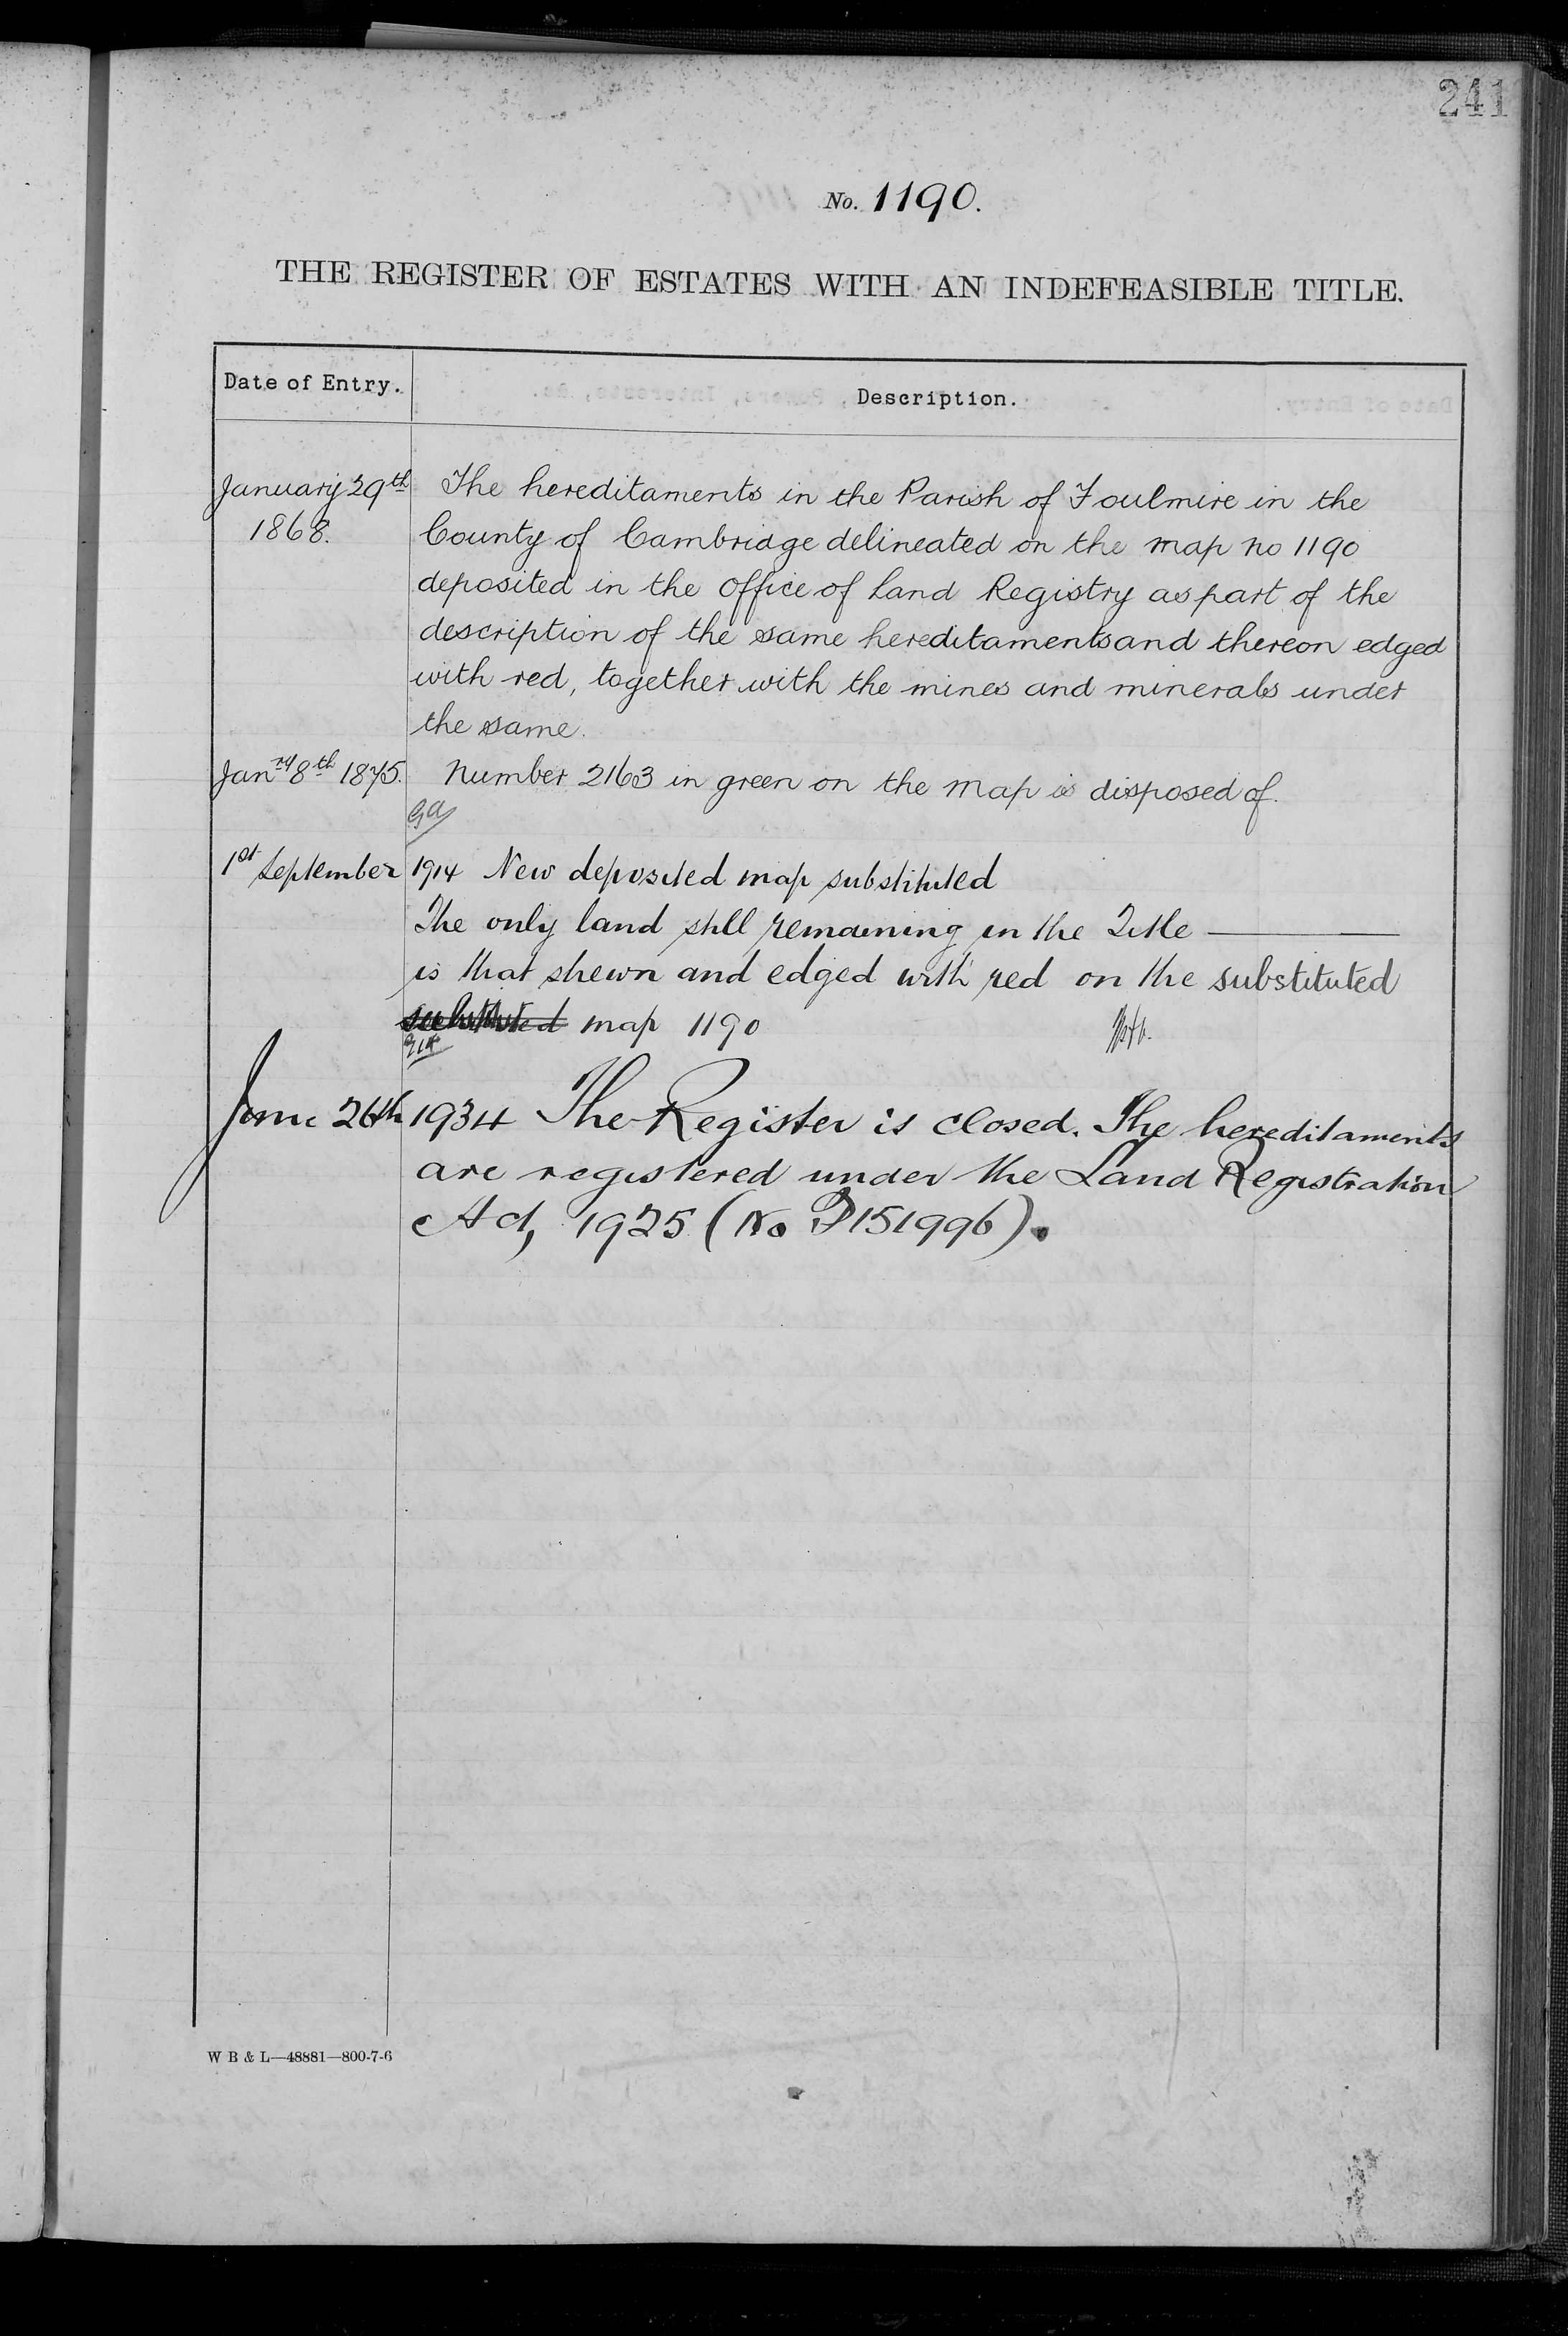 241
No. 1190.
THE REGISTER OF ESTATES WITH AN INDEFEASIBLE TITLE.
Date of Entry. Description.
January 29th The hereditaments in the Parish of Foulmire in the
1868. County of Cambridge delineated on the map no 1190
deposited in the office of Land Registry as part of the
description of the same hereditaments and thereon edged
with red, together with the mines and minerals under
the same.
Janry 8th 1875. Number 2163 in green on the map is disposed of.
1st September 1914 New deposited map substituted
The only land still remaining in the Title
is that shewn and edged with red on the substituted
substituted map 1190
June 26th 1934 The Register is closed. The hereditaments
are registered under the Land Registration
Act, 1925 (No P151996).
W B & L—48881—800-7-6